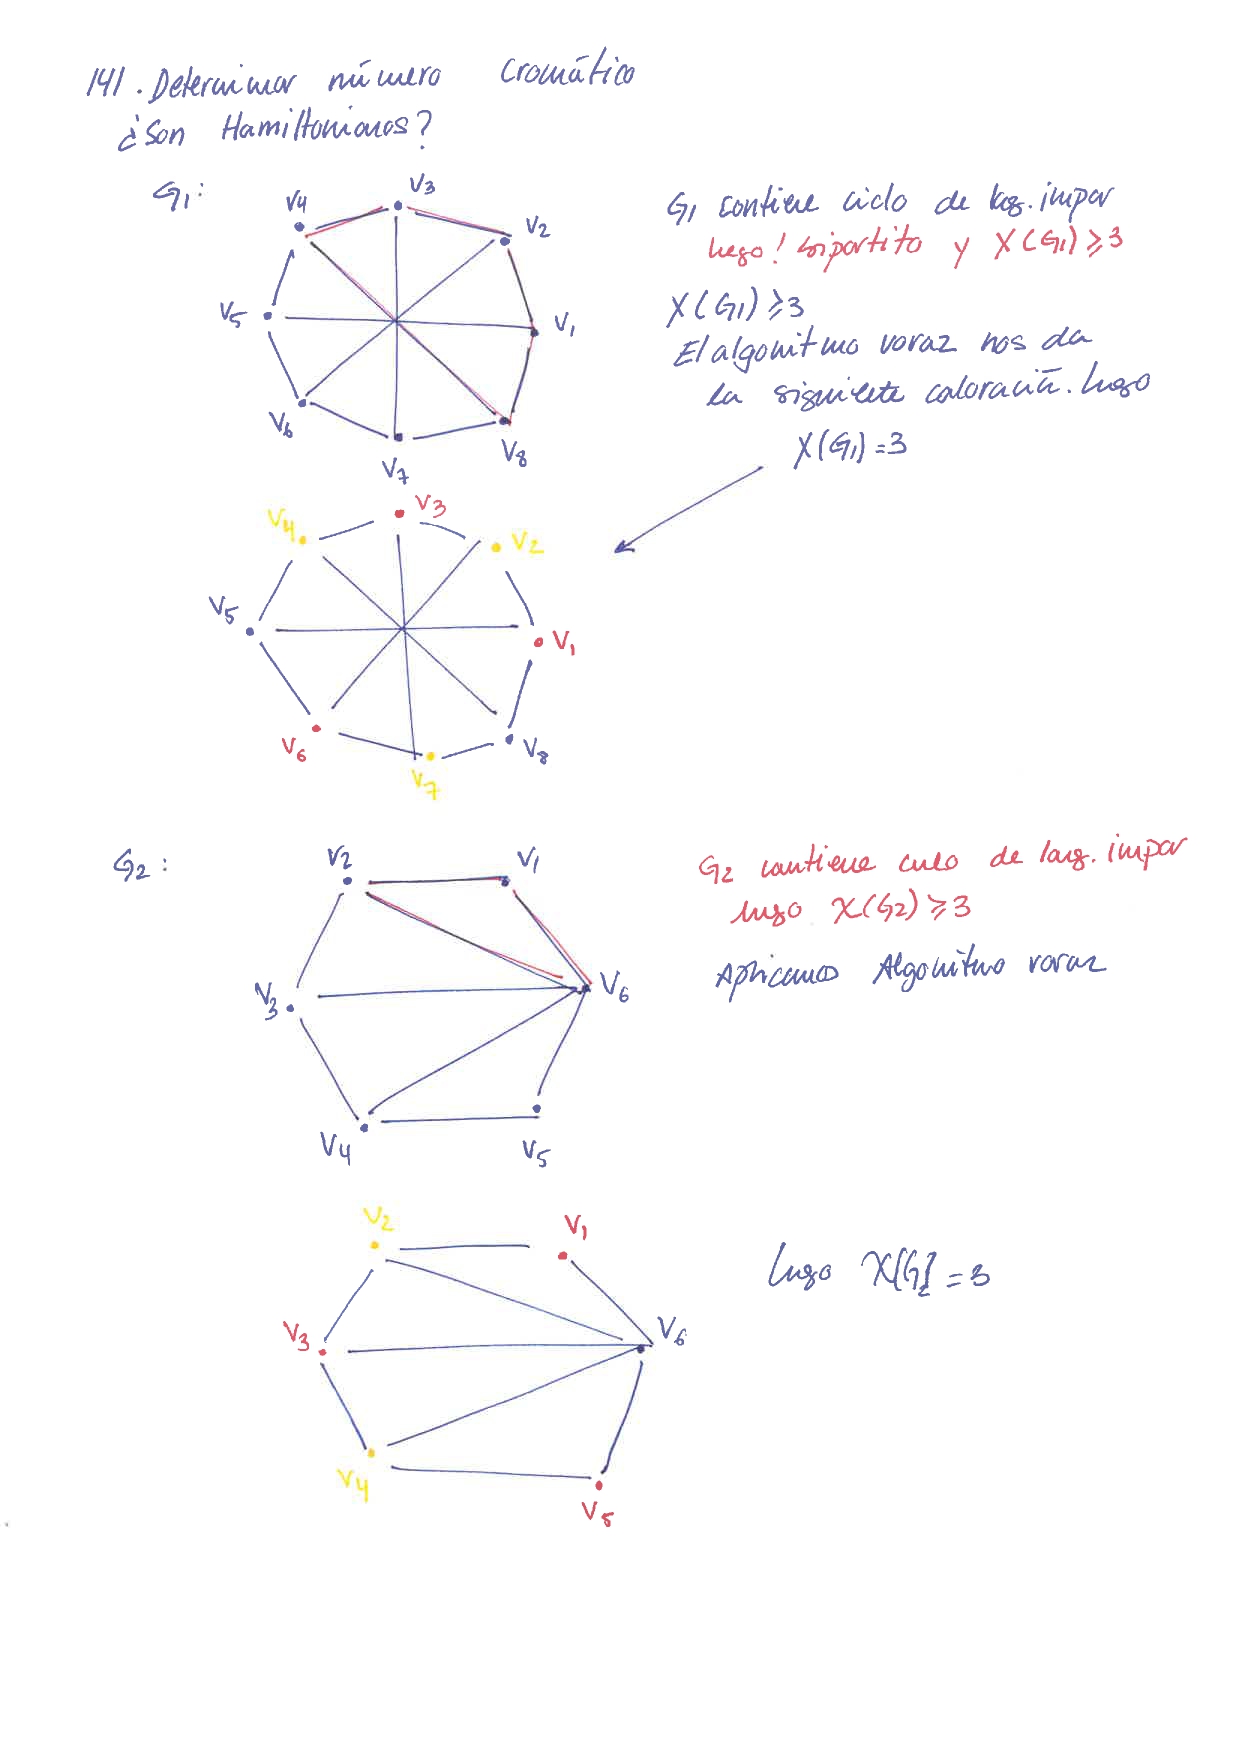 141. Determinar número cromático
¿Son Hamiltonianos?
G1:
V3
V4
V2
V5
V1
V6
V8
V7
G1 contiene ciclo de long. impar
luego ! bipartito y X(G1) ≥ 3
X(G1) ≥ 3
El algoritmo voraz nos da
la siguiente coloración. Luego
X(G1) = 3
V3
V4
V2
V5
V1
V6
V8
V7
G2:
V2
V1
V3
V6
V4
V5
G2 contiene ciclo de long. impar
luego X(G2) ≥ 3
Aplicamos Algoritmo voraz
V2
V1
V3
V6
V4
V5
luego X[G2] = 3